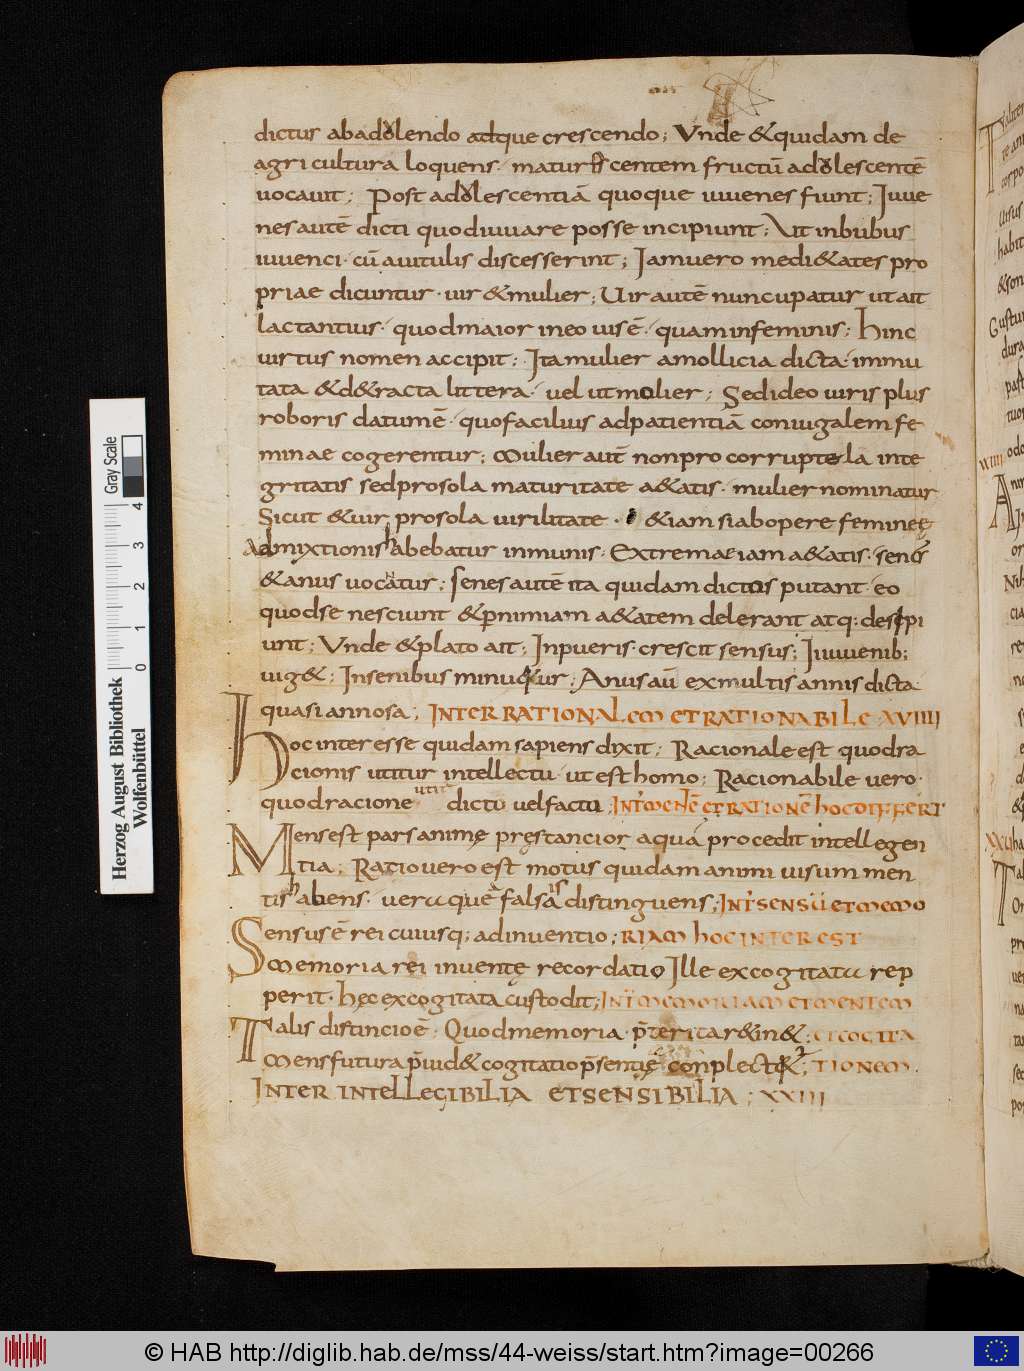 dictus abadolendo adque crescendo; Vnde &quidam de
agri cultura loquens· maturescentem fructū adolescentē
uocauit; Post adolescentiā quoque iuuenes fiunt; Iuue
nes autē dicti quod iuuare posse incipiunt; Ut inbubus
iuuenci· cū auitulis discesserint; Iamuero medi&ates pro
priae dicuntur· uir &mulier; Uir autē nuncupatur ut ait
lactantius· quodmaior ineo uis ē· quaminfeminis; hinc
uirtus nomen accipit; Itamulier amollicia dicta· immu
tata &d&racta littera· uel ut molier; Sedideo uiris plus
roboris datumē· quofacilius adpatientiā coniugalem fe
minae cogerentur; Mulier autē nonpro corruptela inte
gritatis sedprosola maturitate a&atis· mulier nominatur
Sicut &uir prosola uirilitate· &iam siabopere femineę
Admixtionis habebatur inmunis· Extremae iam a&atis· senes
&anus uocatur; senes autē ita quidam dictos putant· eo
quodse nesciunt &p̄nimiam a&atem delerant atq: desipi
unt; Vnde &plato ait; Inpueris· crescit sensus; Iniuuenib;
uig&; Insenibus minuitur; Anus aū exmultis annis dicta
quasi annosa; INTER RATIONALEM ET RATIONABILE XVIIII
Hoc inter esse quidam sapiens dixit; Racionale est quodra
cionis utitur intellectu· ut est homo; Racionabile uero·
quodracione utit dictū uelfactū INT MENTĒ ET RATIONĒ HOC DIFFERT
Mens est pars animę pręstancior aqua procedit intellegen
tia; Ratiouero est motus quidam animi uisum men
tis habens· ueraque falsis distinguens; INT SENSŪ ET MEMO
Sensus ē rei cuiusq; adinuentio; RIAM HOC INTEREST
Memoria rei inuentę recordatio Ille excogitata rep
perit· hęc excogitata custodit; INT MEMORIAM ET MENTEM
Talis distincio ē· Quodmemoria· p̄terita r&in&; ET COGITA
Mens futura p̄uid& cogitatio p̄sentię conplectit; TIONEM·
INTER INTELLEGIBILIA ET SENSIBILIA; XXIII
Gray Scale
4 3 2 1 0
Herzog August Bibliothek
Wolfenbüttel
© HAB http://diglib.hab.de/mss/44-weiss/start.htm?image=00266